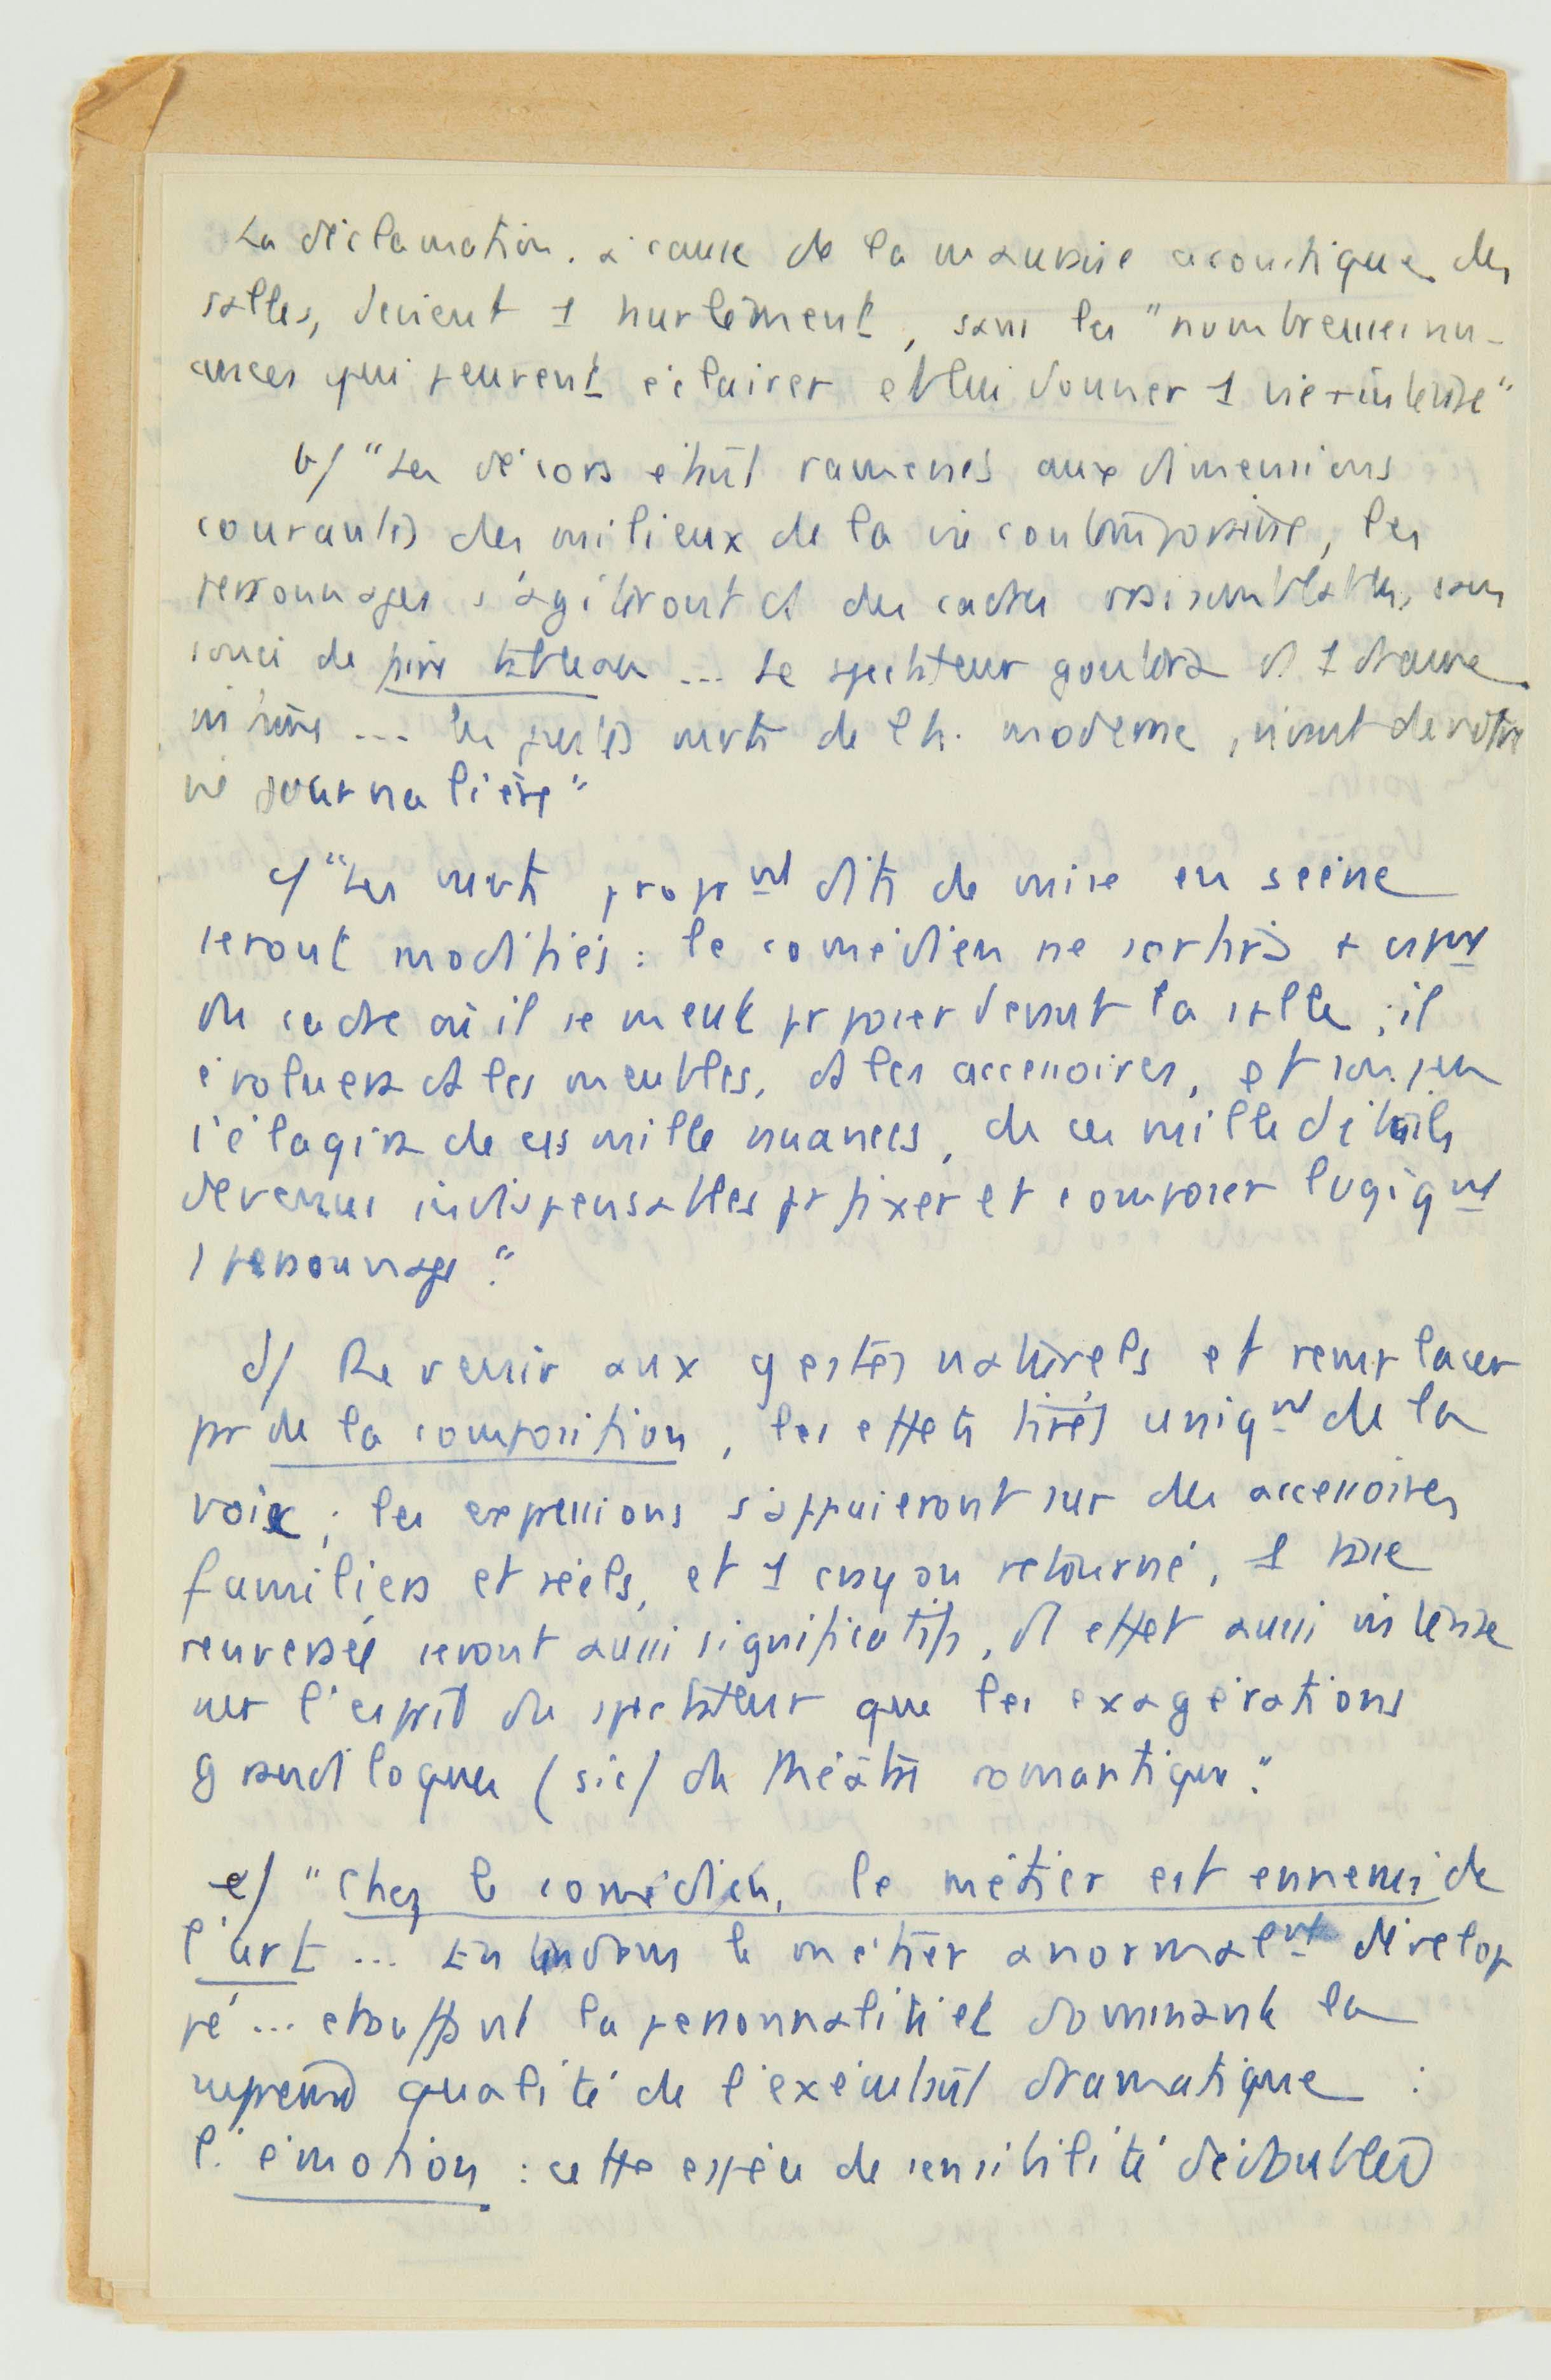 La déclamation, à cause de la mauvaise acoustique des
salles, devient 1 hurlement, sans les "nombreuses nu-
ances qui peuvent éclairer et lui donner 1 vie + intense"
b/ "Les décors étant ramenés aux dimensions
courantes des milieux de la vie contemporaine, les
personnages s'agiteront ds des cadres vraisemblables, sans
souci de faire tableau ... Le spectateur goûtera ds 1 drame
intime ... les justes mvts de l'h. moderne, vivant de notre
vie journalière"
c/ "Les mvts propmt dits de mise en scène
seront modifiés : le comédien ne sortira + 
du cadre où il se meut pr poser devant la salle ; il
évoluera ds les meubles, ds les accessoires, et son jeu
s'élargira de ces mille nuances, de ces mille détails
devenus indispensables pr fixer et composer logiqmt
1 personnage."
d/ Revenir aux gestes naturels et remplacer
pr de la composition, les effets tirés uniqmt de la
voix ; les expressions s'appuieront sur des accessoires
familiers et réels, et 1 crayon retourné, 1 tasse
renversée seront aussi significatifs, d'1 effet aussi intense
sur l'esprit du spectateur que les exagérations
grandiloques (sic) du théâtre romantique."
e/ "Chez le comédien, le métier est ennemi de
l'art ... le métier anormalmt dévelop
pé ... étouffant la personnalité et dominant la
qualité de l'exécutant dramatique :
l'émotion : cette espèce de sensibilité dédoublée